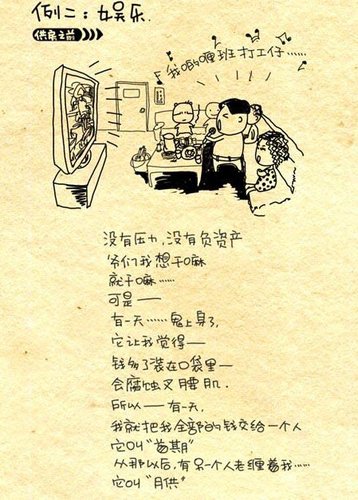 例二:娱乐.
供房之前
我哋呢班打工仔……
没有压力,没有负资产
爷们我想干嘛
就干嘛……
可是——
有一天……鬼上身了,
它让我觉得——
钱多了装在口袋里—
会腐蚀叉腰肌.
所以——有一天,
我就把我全部的钱交给一个人
它叫“首期”
从那以后,有另一个人老缠着我……
它叫“月供”